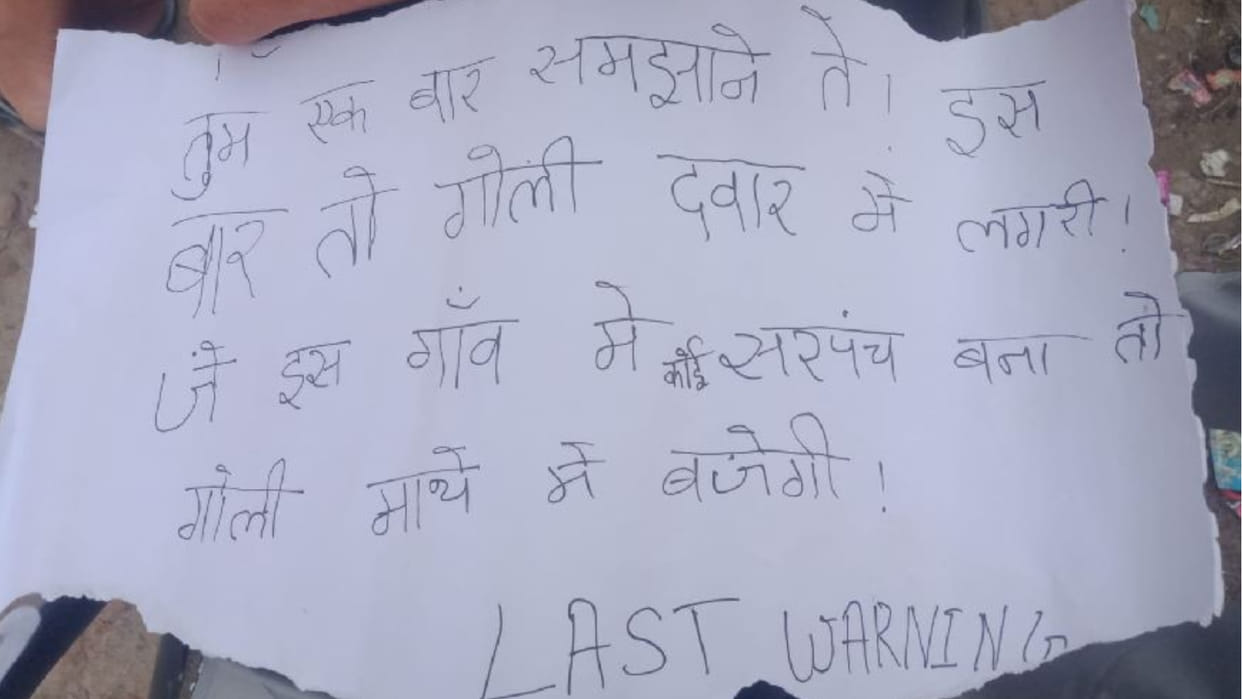 तुम एक बार समझाने ते। इस
बार तो गोली दवार में लगरी!
जे इस गाँव मे कोई सरपंच बना तो
गोली माथे मे बजेगी!
LAST WARNING